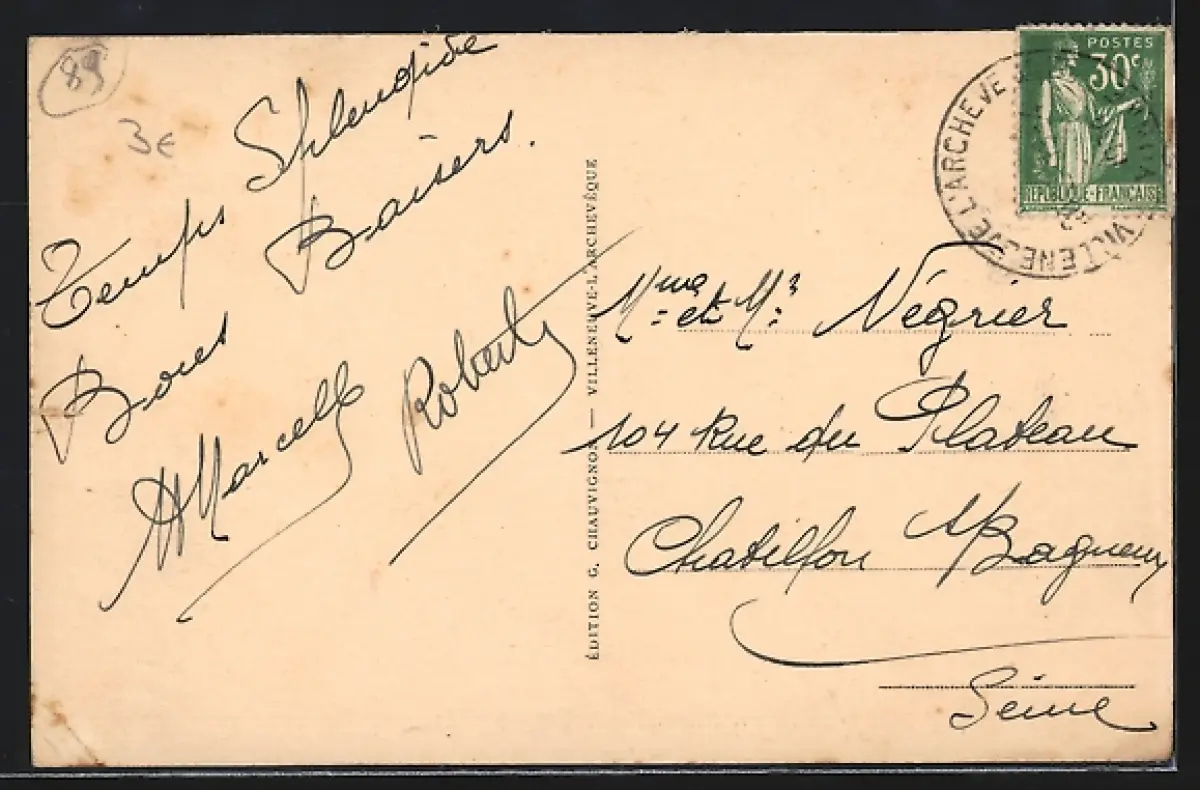 89
3€
Temps Splendide
Bons Baisers.
Marcelle Robert
ÉDITION G. CHAUVIGNON — VILLENEUVE-L'ARCHEVÊQUE
POSTES
30c
RÉPUBLIQUE-FRANÇAISE
VILLENEUVE L'ARCHEVE
Mme et Mr Négrier
104 Rue du Plateau
Chatillon s/Bagneux
Seine